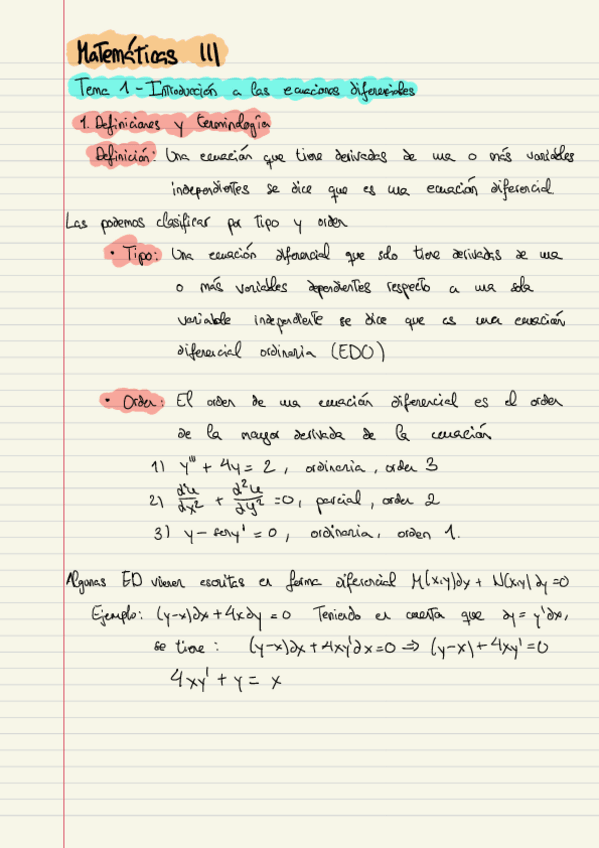 Matemáticas III
Tema 1 - Introducción a las ecuaciones diferenciales
1. Definiciones y terminología
Definición: Una ecuación que tiene derivadas de una o más variables
independientes se dice que es una ecuación diferencial
Las podemos clasificar por tipo y orden
• Tipo: Una ecuación diferencial que solo tiene derivadas de una
o más variables dependientes respecto a una sola
variable independiente se dice que es una ecuación
diferencial ordinaria (EDO)
• Orden: El orden de una ecuación diferencial es el orden
de la mayor derivada de la ecuación
1) y''' + 4y = 2, ordinaria, orden 3
2) ∂²u/∂x² + ∂²u/∂y² = 0, parcial, orden 2
3) y - seny' = 0, ordinaria, orden 1.
Algunas ED vienen escritas en forma diferencial M(x,y)∂x + N(x,y)∂y = 0
Ejemplo: (y-x)∂x + 4x∂y = 0 Teniendo en cuenta que ∂y = y'∂x,
se tiene: (y-x)∂x + 4xy'∂x = 0 ⇒ (y-x) + 4xy' = 0
4xy' + y = x